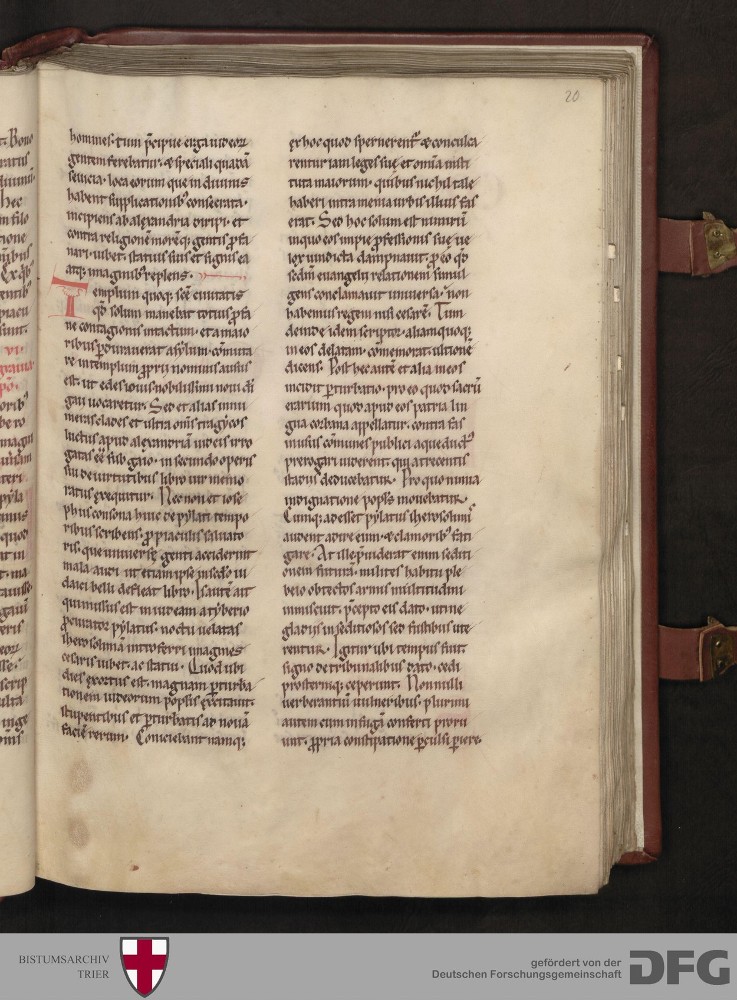 20
homines. tum p̄cipue erga iudeoꝝ
gentem ferebatur. & speciali quadā
seuicia. loca eorum que in diuinis
habent supplicationibꝰ consecrata.
incipiens ab alexandria diripi. et
contra religionē morēq; gentis p̲fa
nari iubet. statuis suis et signis ea
atq; imaginibꝰ replens.
Templum quoq; scē ciuitatis
qđ solum manebat totius p̲fa
ne contagionis intactum. et a maio
ribus p̲durauerat asylum. cōmuta
re in templum p̲prii nominis ausus
est. ut edes iouis nobilissimi noui di
gaii uocaretur. Sed et alias innu
meras clades et ultra om̄s tragycos
luctus apud alexandriā iudeis irro
gatas eē sub gaio. in secundo operis
sui de uirtutibus libro uir memo
ratus exequitur. Nec non et iose
phus consona huic de pylati tempo
ribus scribens. p̲ piaculis saluato
ris. que uniuersę genti acciderunt
mala. audi ut etiam ipse in sedo iu
daici belli defleat libro. Is autē ait
qui missus est in iudeam a tyberio
p̲curator pylatus. noctu uelatas
iherosolimā introferri imagines
cesaris iubet. ac statui. Quod ubi
dies exortus est. magnam p̲turba
tionem iudeorum popłis excitauit.
stupentibus et p̲turbatis ad nouā
faciē rerum. Coniciebant namq;
ex hoc quod spernerent̄. & conculca
rentur iam leges suę. et om̄ia insti
tuta maiorum. quibus nichil tale
haberi intra menia urbis illius fas
erat. Sed hoc solum est mirum
in quo eos impie p̲fessionis suę ue
lox uindicta dampnauit. p̲ eo qđ
scdm̄ euangelii relationem simul
gens conclamauit uniuersa. non
habemus regem nisi cesarē. Tum
deinde idem scriptor. aliam quoq;
in eos delatam. cōmemorat ultionē
dicens. Post hec autē et alia in eos
incidit p̲turbatio. pro eo quod sacrū
erarium quod apud eos patria lin
gua corbana appellatur. contra fas
in usus cōmunes publici aqueductꝰ
prerogari uiderent. qui a trecentis
stadiis deducebatur. Pro quo nimia
indignatione popłs mouebatur.
Cumq; adesset pylatus iherosolimis
audent adire eum. & clamoribꝰ fati
gare. At ille p̲uiderat enim sediti
onem futurā. milites habitu ple
beio obtectos armis multitudini
inmiscuit. p̄cepto eis dato. ut ne
gladiis in seditiosos sed fustibus ute
rentur. Igitur ubi tempus fuit
signo de tribunalibus dato. cedi
prosterniq; ceperunt. Non nulli
uerberantium uulneribus. plurimi
autem eum in fugā conferti proru
unt. p̲pria constipatione p̲culsi p̲iere.
BISTUMSARCHIV
TRIER
gefördert von der
Deutschen Forschungsgemeinschaft
DFG